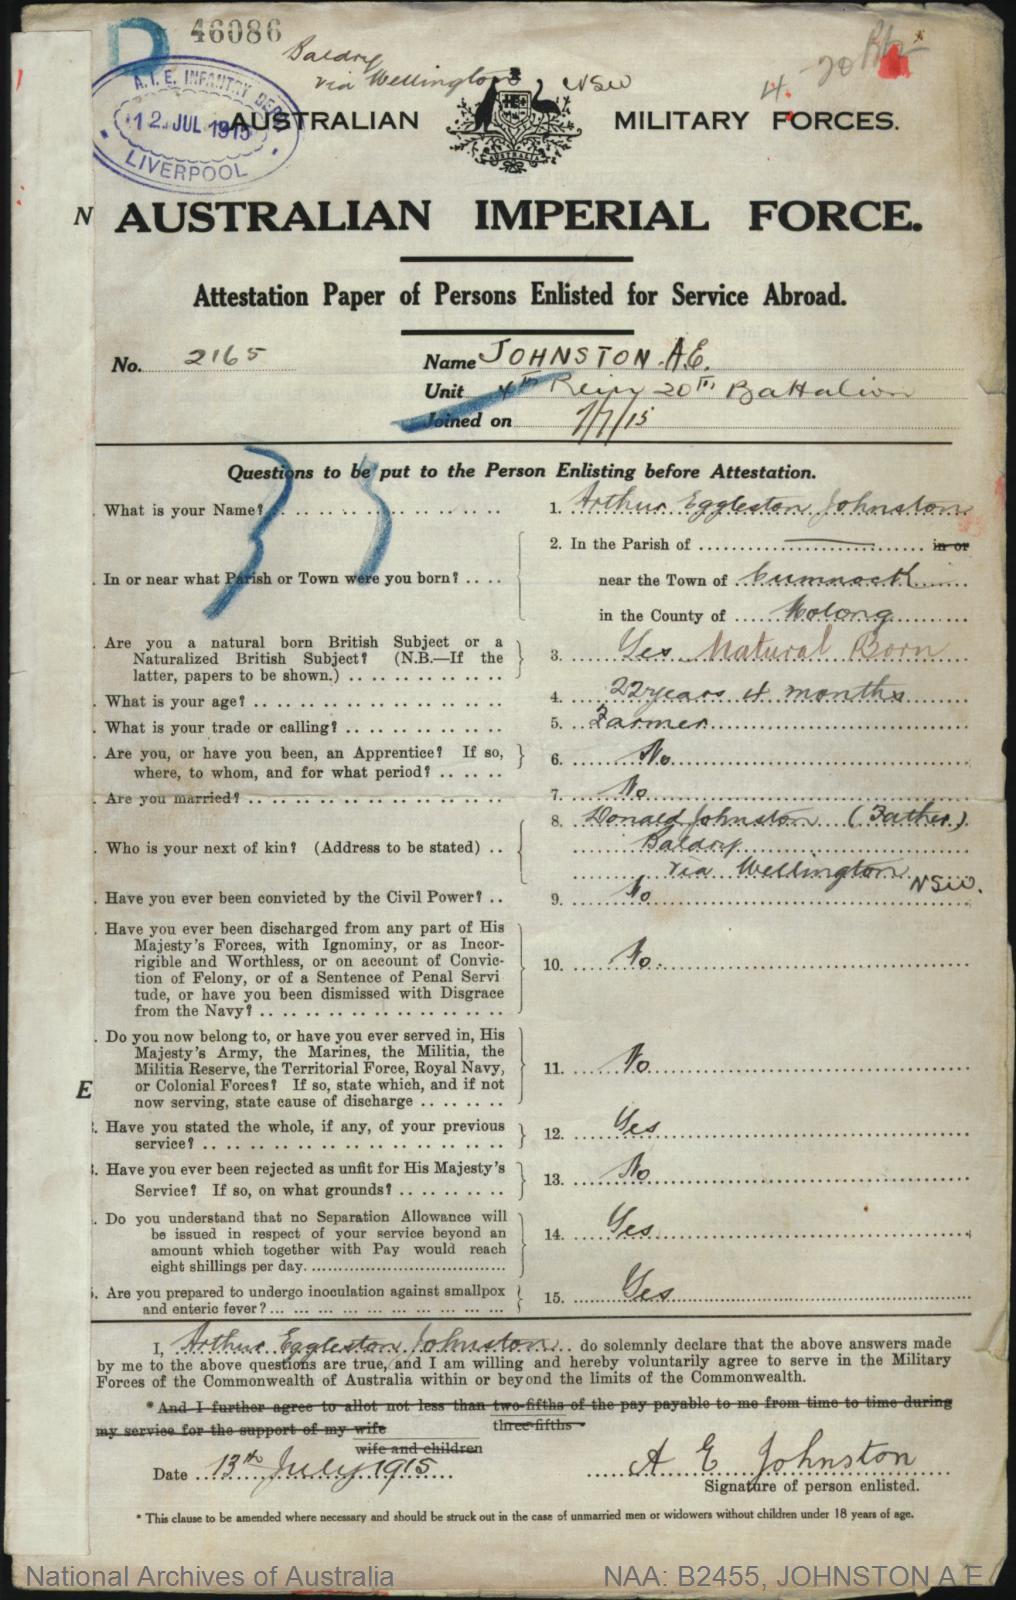 46086
Baldry
via Wellington NSW
4. 20
A.I.F. INFANTRY DEPOT
12 JUL 1915
LIVERPOOL
AUSTRALIAN MILITARY FORCES.
AUSTRALIA
N
AUSTRALIAN IMPERIAL FORCE.
Attestation Paper of Persons Enlisted for Service Abroad.
No. 2165 Name JOHNSTON A.E.
Unit 4th Rein 20th Battalion
Joined on 7/7/15
Questions to be put to the Person Enlisting before Attestation.
. What is your Name? 1. Arthur Eggleston Johnston
2. In the Parish of in or
. In or near what Parish or Town were you born? near the Town of Cumnock
in the County of Molong
. Are you a natural born British Subject or a
Naturalized British Subject? (N.B.—If the 3. Yes Natural Born
latter, papers to be shown.)
. What is your age? 4. 22 years 4 months
. What is your trade or calling? 5. Farmer
. Are you, or have you been, an Apprentice? If so, 6. No
where, to whom, and for what period?
. Are you married? 7. No
8. Donald Johnston (Father)
. Who is your next of kin? (Address to be stated) Baldry
via Wellington NSW.
. Have you ever been convicted by the Civil Power? 9. No
. Have you ever been discharged from any part of His
Majesty's Forces, with Ignominy, or as Incor-
rigible and Worthless, or on account of Convic- 10. No.
tion of Felony, or of a Sentence of Penal Servi
tude, or have you been dismissed with Disgrace
from the Navy?
. Do you now belong to, or have you ever served in, His
Majesty's Army, the Marines, the Militia, the
Militia Reserve, the Territorial Force, Royal Navy, 11. No
or Colonial Forces? If so, state which, and if not
E
now serving, state cause of discharge
. Have you stated the whole, if any, of your previous 12. Yes
service?
. Have you ever been rejected as unfit for His Majesty's 13. No
Service? If so, on what grounds?
. Do you understand that no Separation Allowance will
be issued in respect of your service beyond an 14. Yes
amount which together with Pay would reach
eight shillings per day.
. Are you prepared to undergo inoculation against smallpox 15. Yes
and enteric fever?
I, Arthur Eggleston Johnston do solemnly declare that the above answers made
by me to the above questions are true, and I am willing and hereby voluntarily agree to serve in the Military
Forces of the Commonwealth of Australia within or beyond the limits of the Commonwealth.
*And I further agree to allot not less than two-fifths of the pay payable to me from time to time during
three-fifths
my service for the support of my wife
wife and children
Date 13th July 1915 A E Johnston
Signature of person enlisted.
* This clause to be amended where necessary and should be struck out in the case of unmarried men or widowers without children under 18 years of age.
National Archives of Australia NAA: B2455, JOHNSTON A E